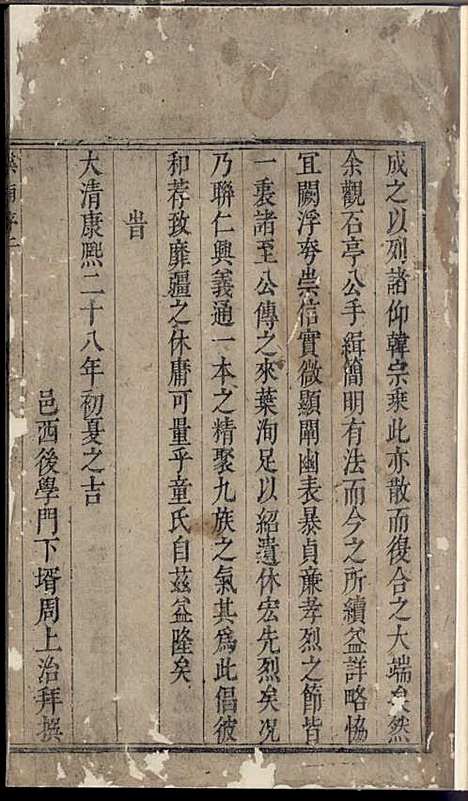 成之以列諸仰韓宗乘此亦散而復合之大端矣然
余觀石亭公手緝簡明有法而今之所續益詳略恊
宜闕浮夸崇信實微顯闡幽表暴貞亷孝烈之節皆
一裏諸至公傳之來葉洵足以紹遺休宏先烈矣况
乃聯仁興義通一本之精聚九族之氣其爲此倡彼
和荐致靡疆之休庸可量乎童氏自兹益隆矣
旹
大清康熈二十八年初夏之吉
邑西後學門下壻周上治拜撰